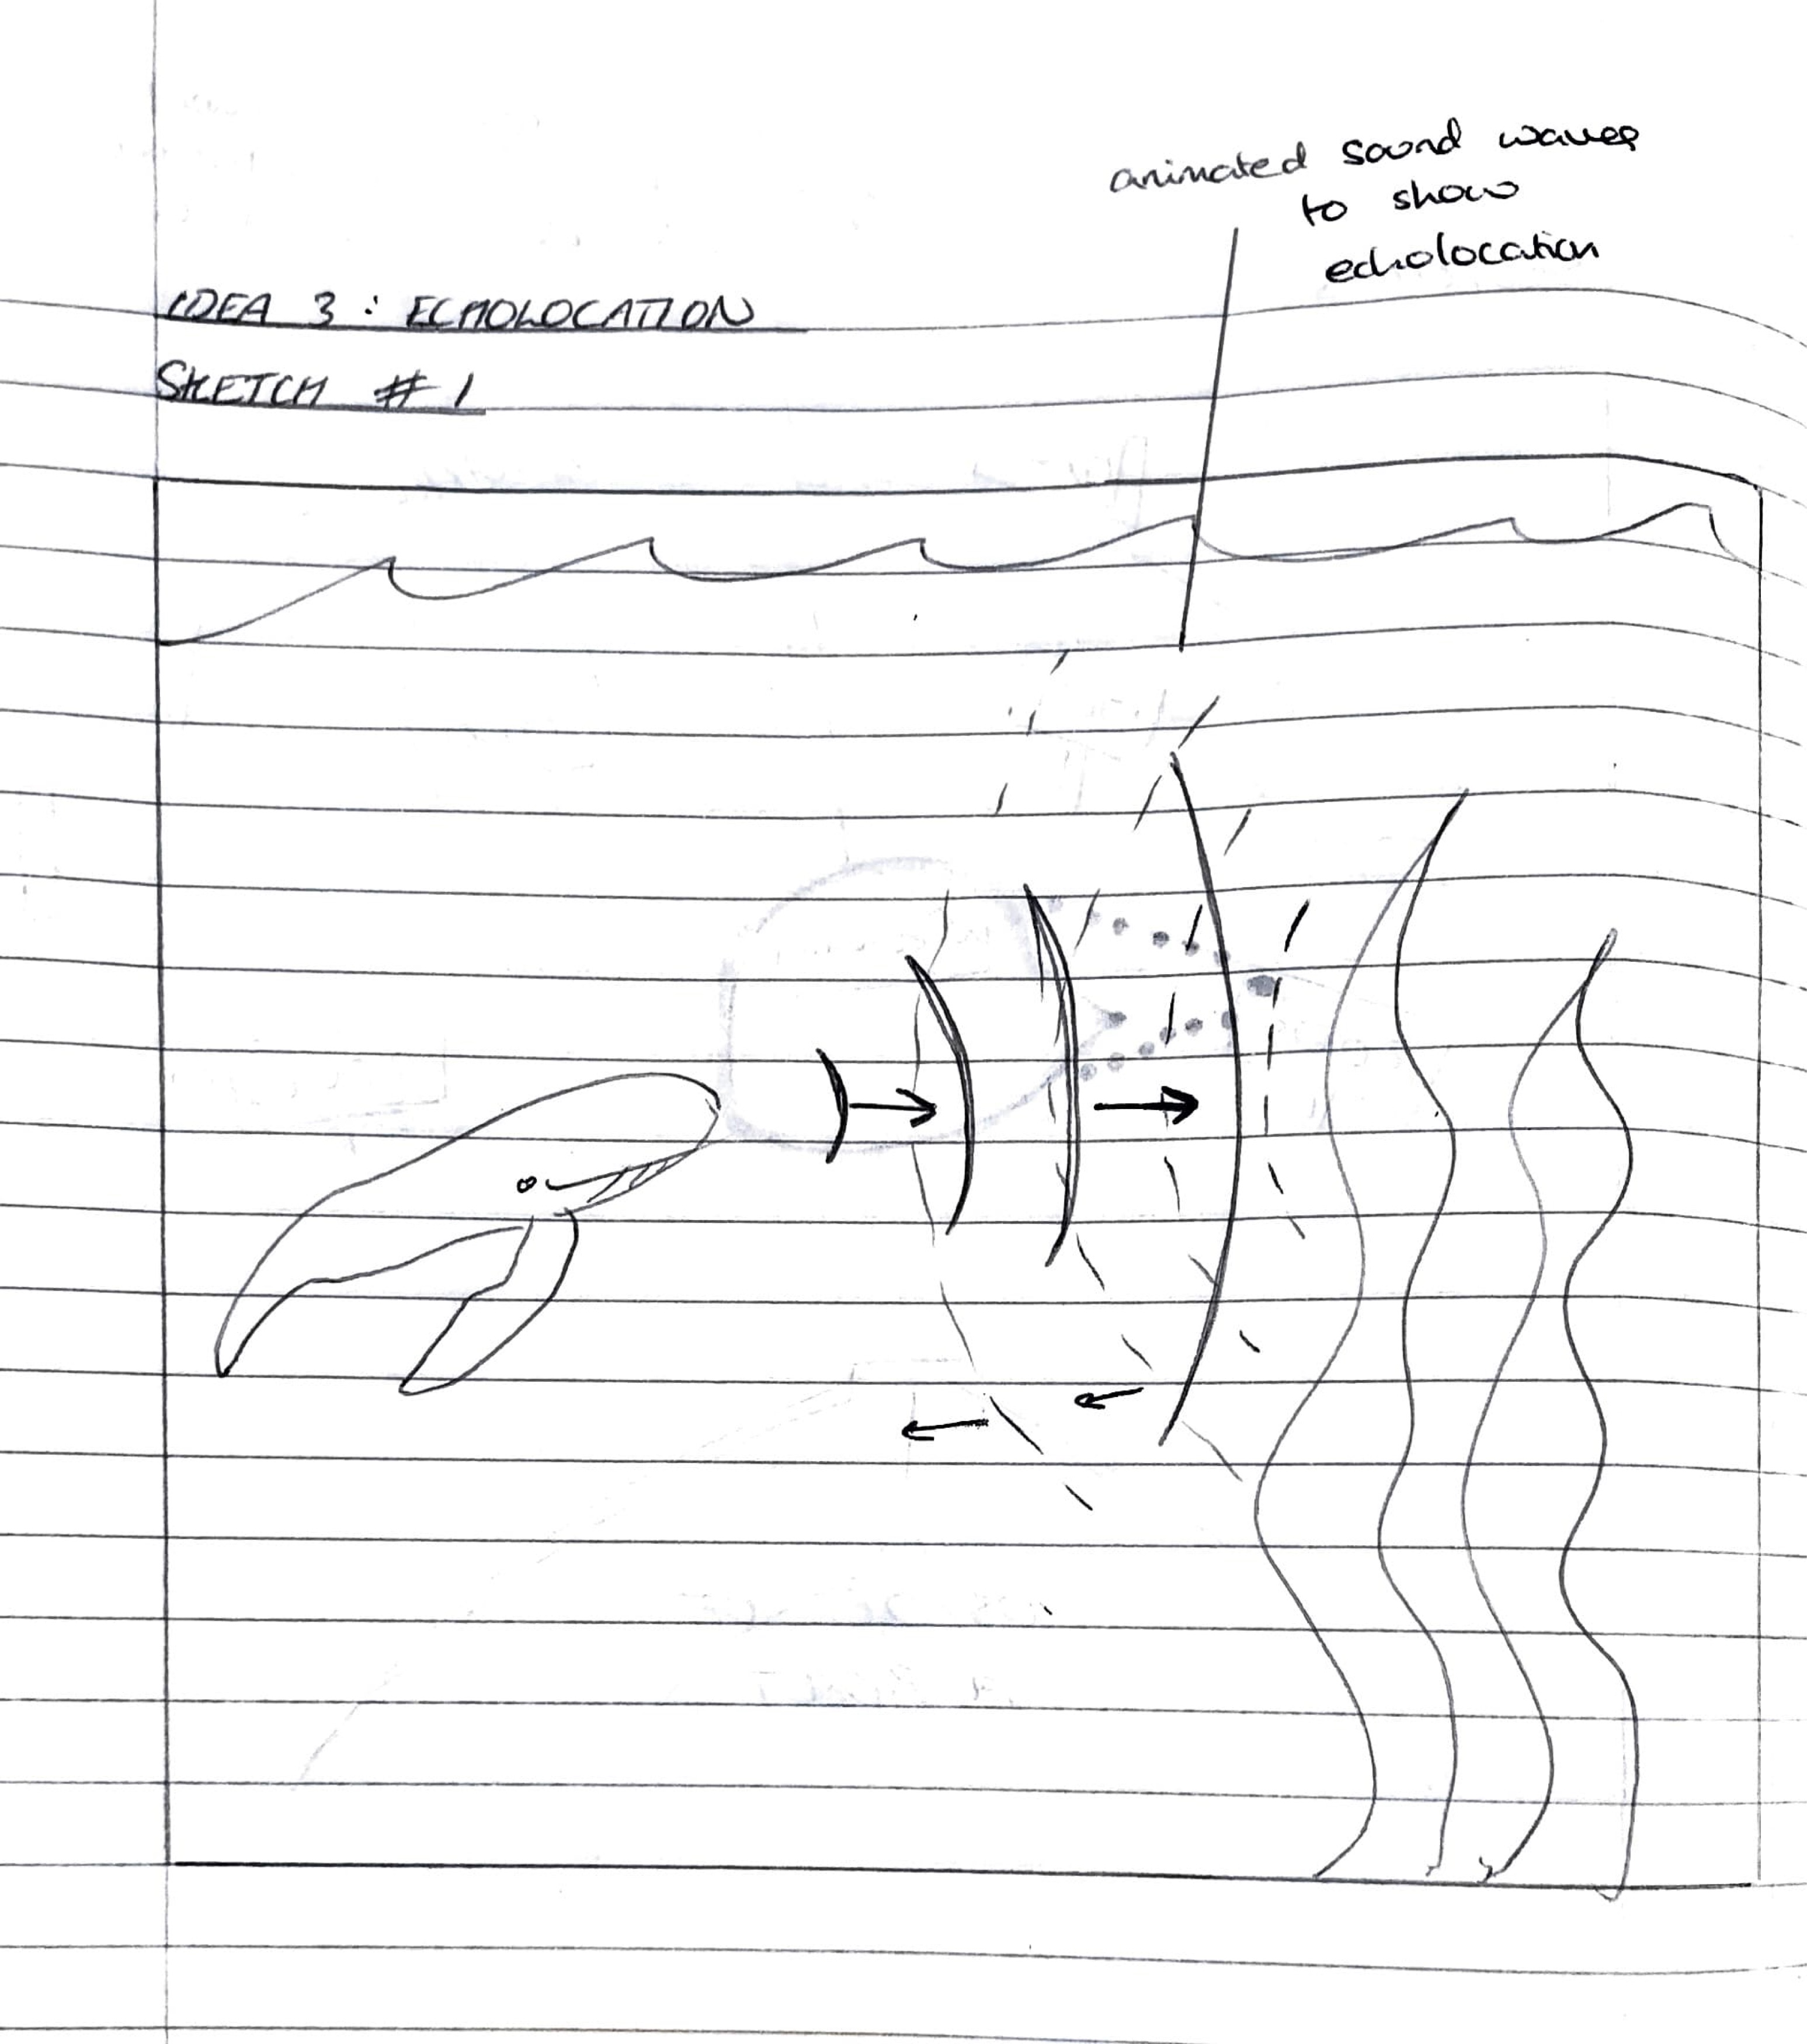 animated sound waves
to show
echolocation
IDEA 3 : ECHOLOCATION
SKETCH # 1